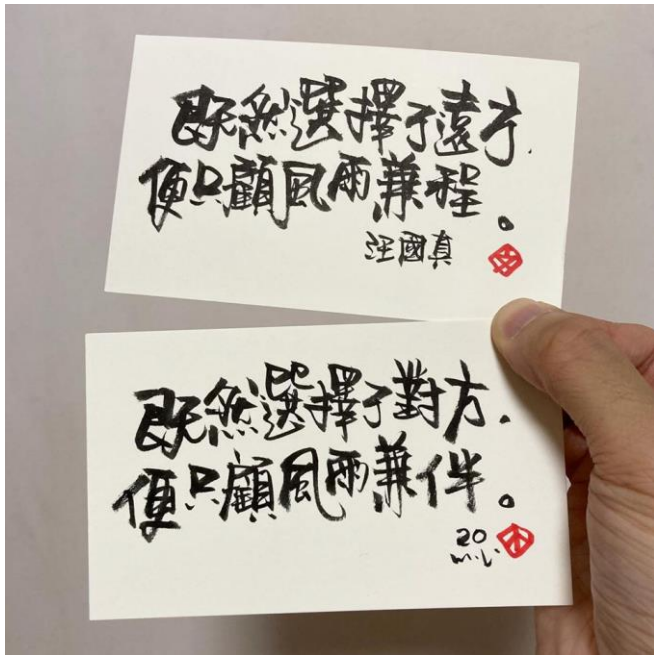 既然選擇了遠方.
便只顧風雨兼程。
汪國真
既然選擇了對方.
便只顧風雨兼伴。
20